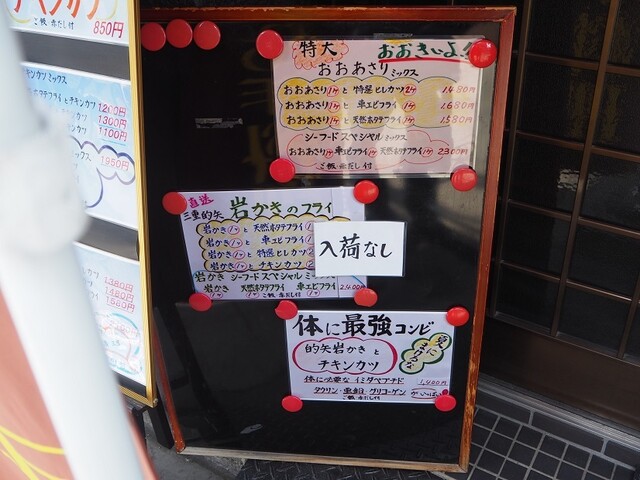 チキンカツ
ご飯 赤だし付 850円
チキンカツミックス
ホタテフライとチキンカツ 1,200円
1300円
1,100円
ミックス 1950円
1,380円
1480円
1580円
特大 おおきいよ!
おおあさりミックス
おおあさり1ケと特選ヒレカツ2ケ 1,480円
おおあさり1ケと車エビフライ1ケ 1,680円
おおあさり1ケと天然ホタテフライ1ケ 1580円
シーフードスペシャルミックス
おおあさり1ケ車エビフライ1ケ天然ホタテフライ1ケ 2300円
ご飯 赤だし付
直送
三重的矢 岩かきのフライ
岩かき1ケと天然ホタテフライ
岩かき1ケと車エビフライ
岩かき1ケと特選ヒレカツ
岩かき1ケとチキンカツ
岩かきシーフードスペシャルミックス
岩かき1ケ 天然ホタテフライ1ケ 車エビフライ1ケ 2,400円
ご飯 赤だし付
入荷なし
体に最強コンビ
的矢岩かきと
チキンカツ
夏バテに
体に必要なイミダペプチド 1,400円
タウリン・亜鉛・グリコーゲンがいっぱい
ご飯 赤だし付